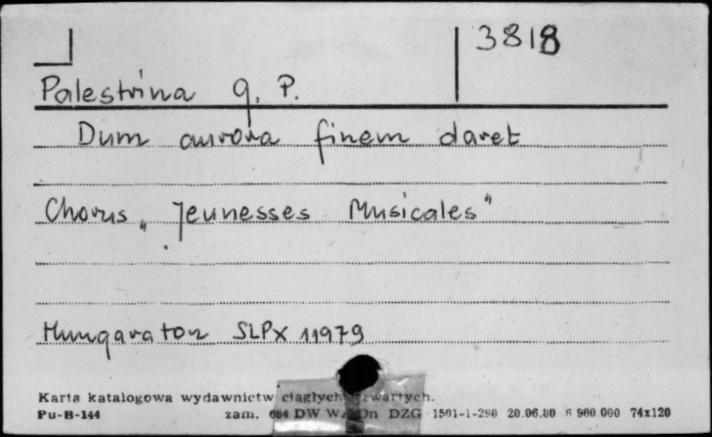 3818
Palestrina G. P.
Dum aurora finem daret
Chorus „Jeunesses Musicales"
Hungaraton SLPX 11979
Karta katalogowa wydawnictw ciągłych zwartych.
Pu-B-144 zam. 684 DW W/ Dn DZG 1501-1-280 20.06.80 6 960.000 74x120